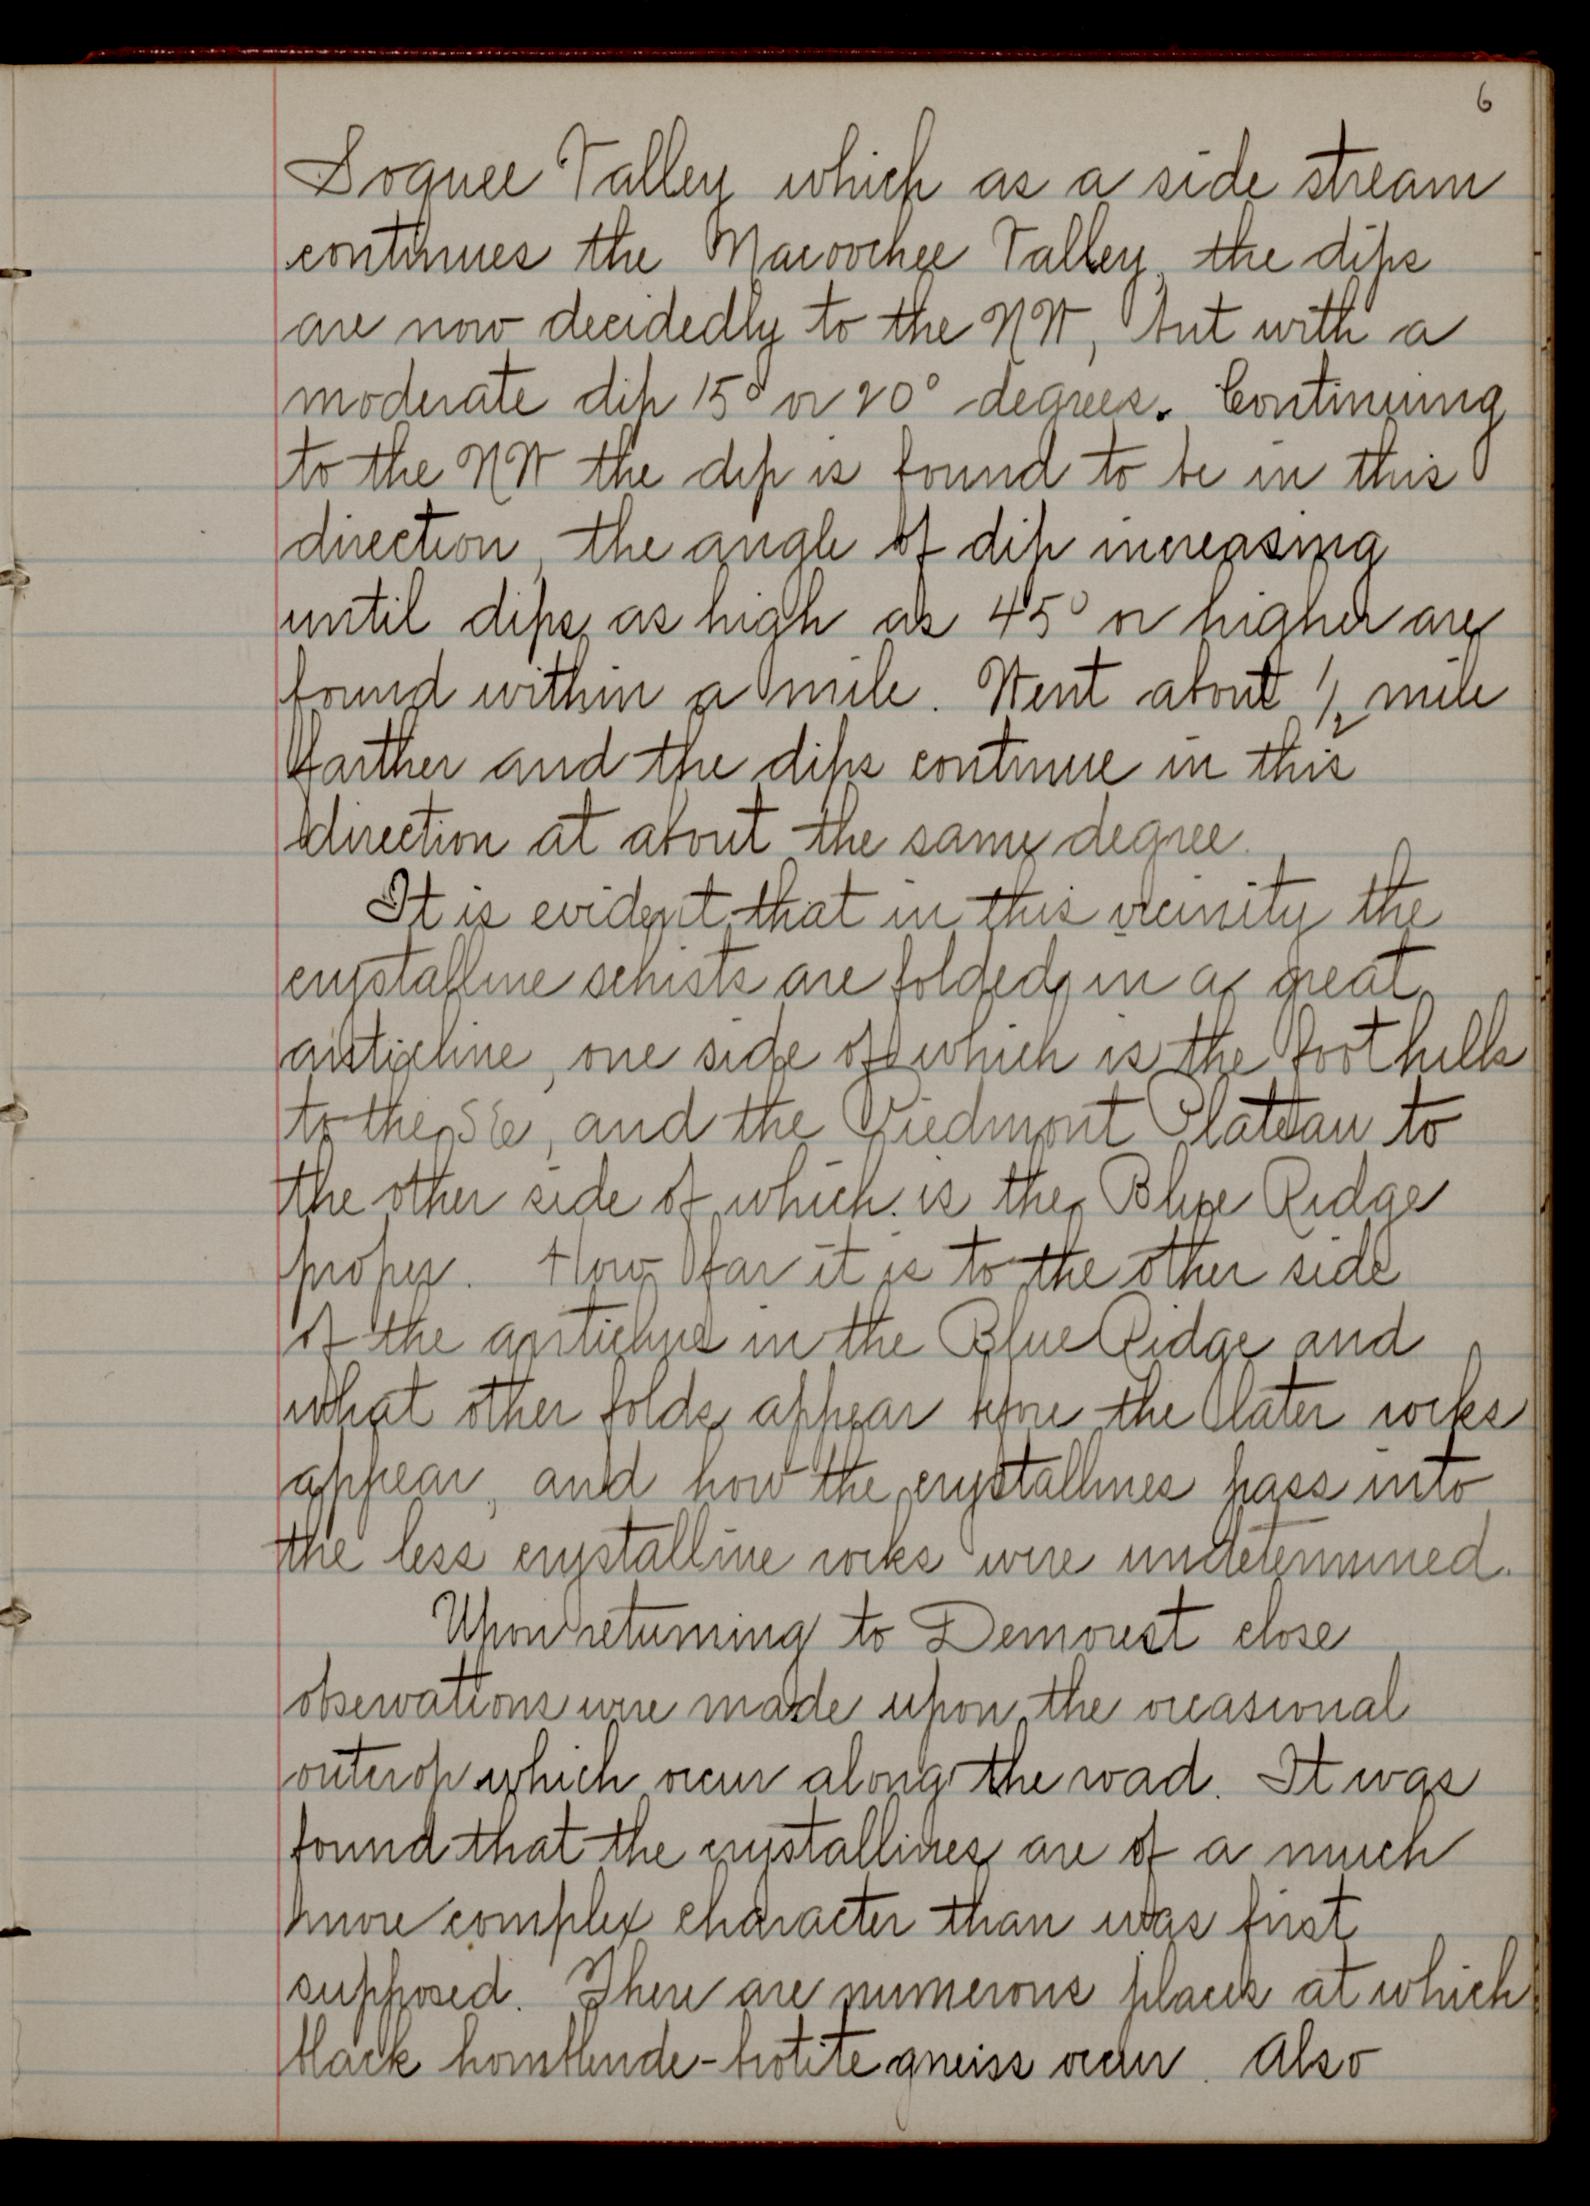 6
Soquee Valley which as a side stream
continues the Nacoochee Valley, the dips
are now decidedly to the NW, but with a
moderate dip 15° or 20° degrees. Continuing
to the NW the dip is found to be in this
direction, the angle of dip increasing
until dips as high as 45° or higher are
found within a mile. Went about 1/2 mile
farther and the dips continue in this
direction at about the same degree.
It is evident that in this vicinity the
crystalline schists are folded in a great
anticline, one side of which is the foot hills
to the SE, and the Piedmont Plateau to
the other side of which is the Blue Ridge
proper. How far it is to the other side
of the anticline in the Blue Ridge and
what other folds appear before the later rocks
appear, and how the crystallines pass into
the less crystalline rocks were undetermined.
Upon returning to Demorest close
observations were made upon the occasional
outcrop which occur along the road. It was
found that the crystallines are of a much
more complex character than was first
supposed. There are numerous places at which
black hornblende-biotite gneiss occur. Also